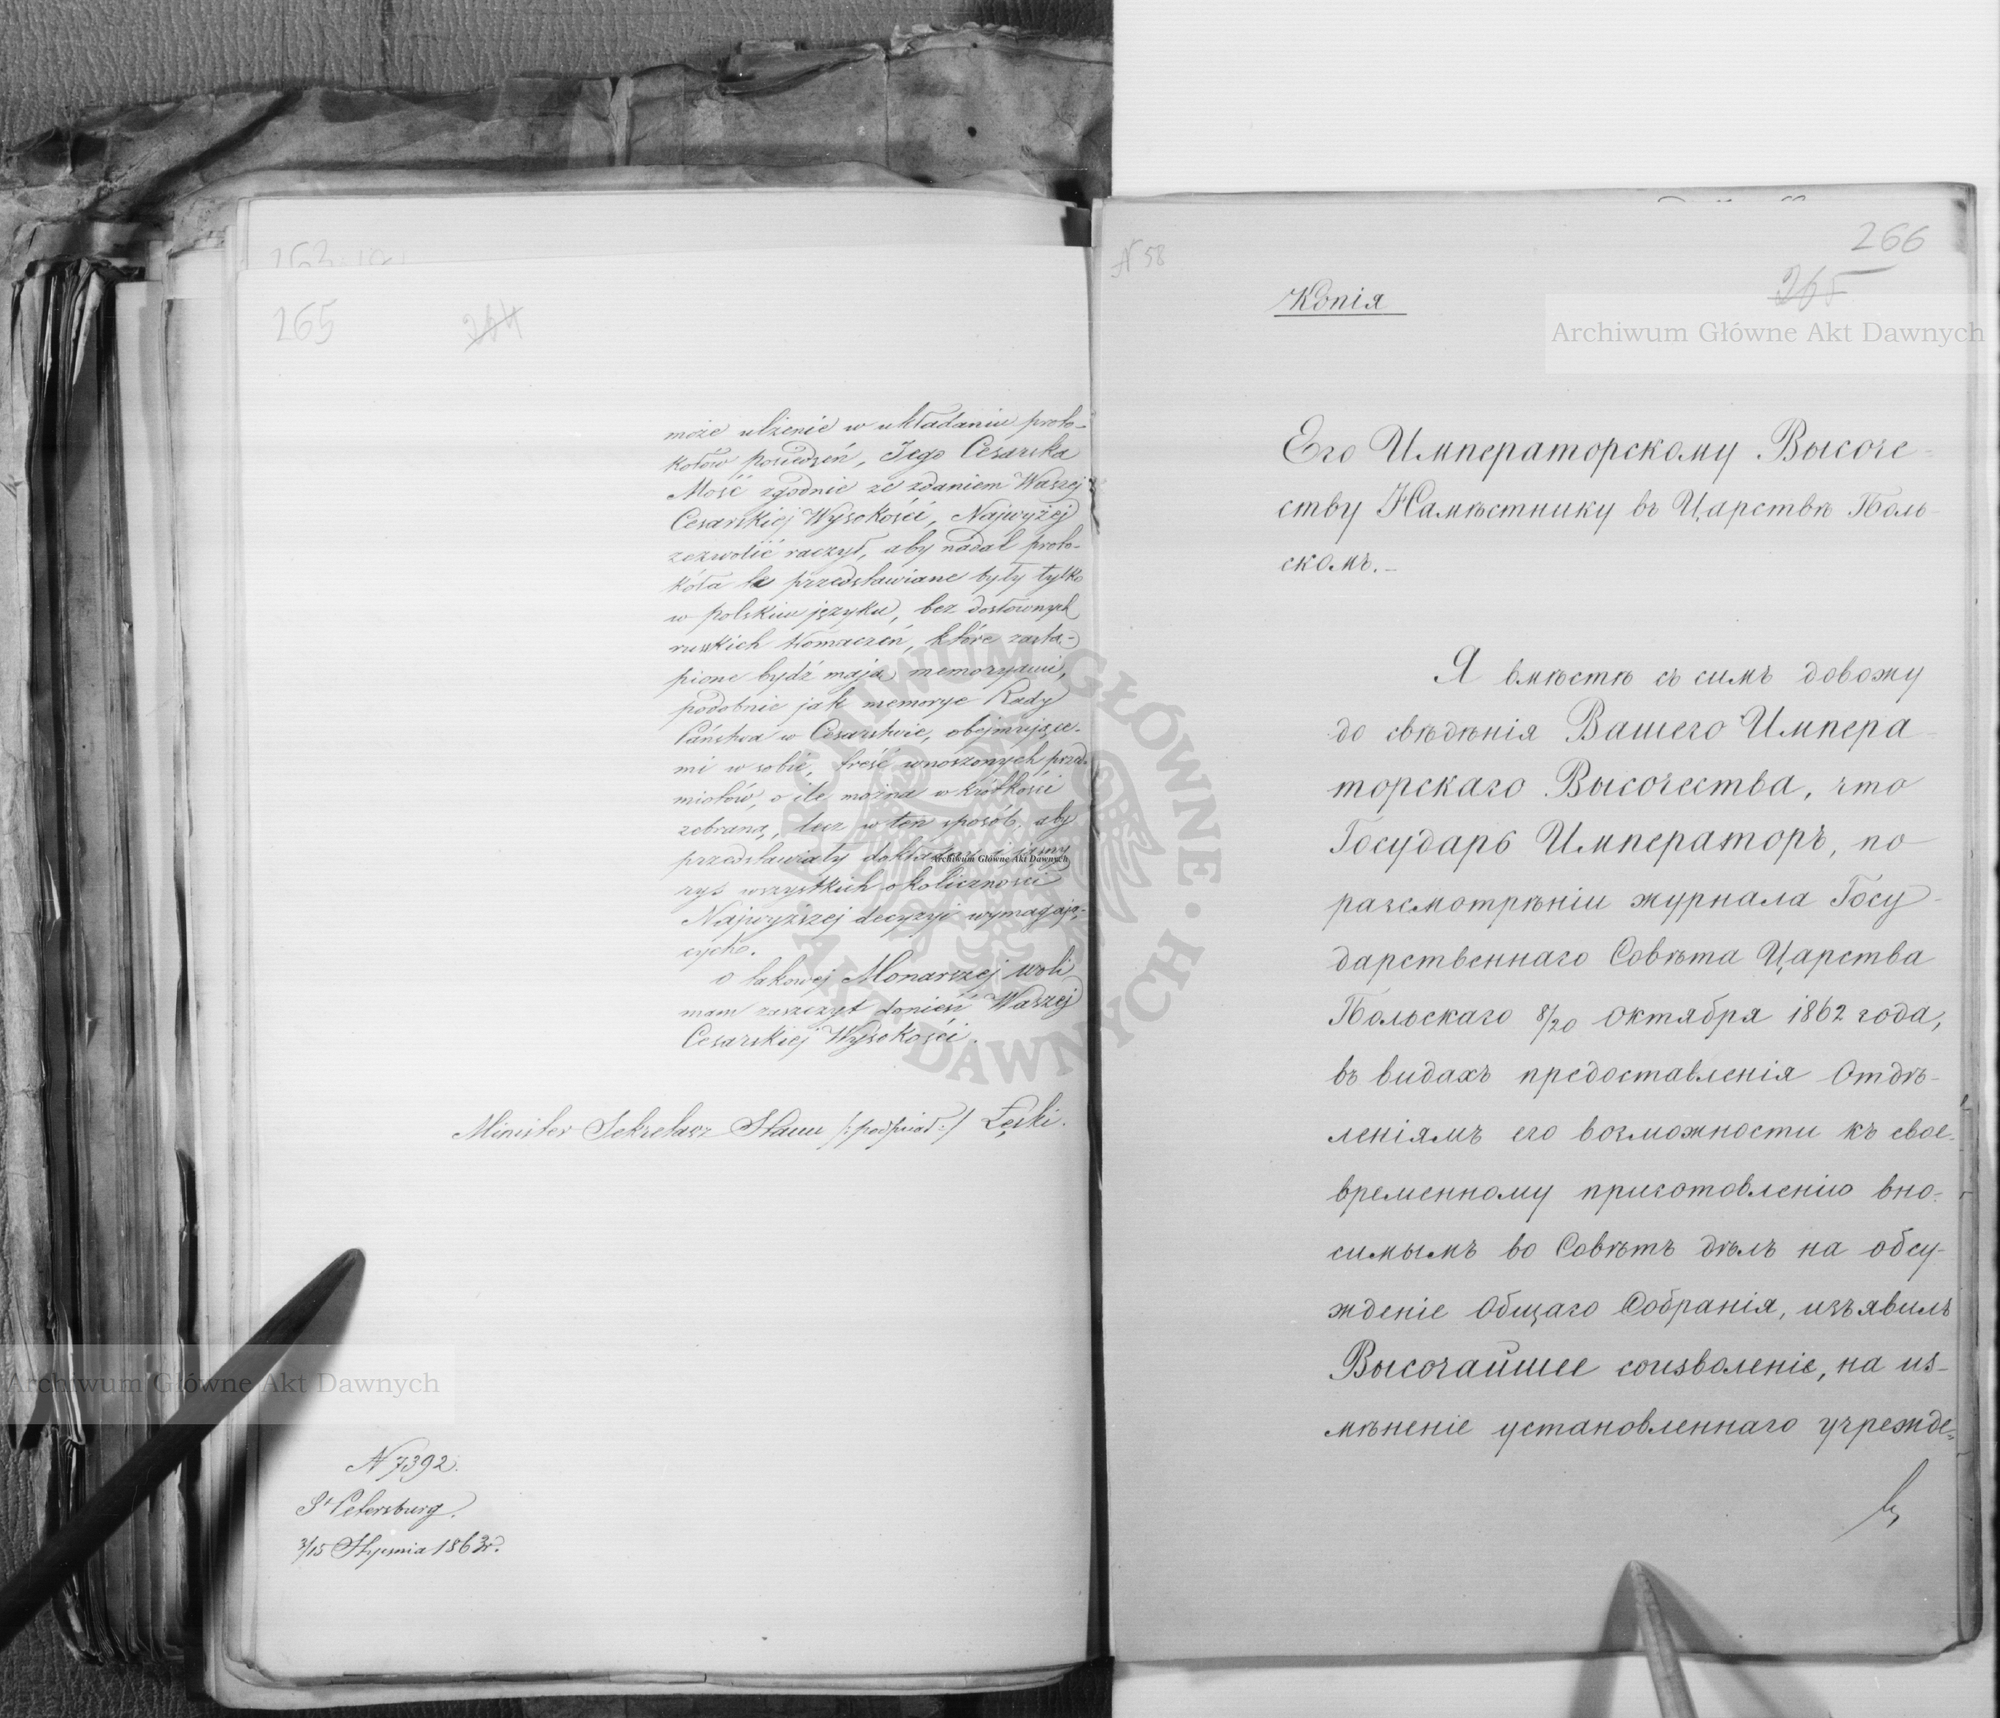 265
264
może ulżenie w układaniu proto-
kołów posiedzeń, Jego Cesarska
Mość zgodnie ze zdaniem Waszej
Cesarskiej Wysokości, Najwyżej
zezwolić raczył, aby nadal proto-
kóła te przedstawiane były tylko
w polskim języku, bez dosłownych
ruskich tłomaczeń, które zastą-
pione bydź mają memoryami,
podobnie jak memorye Rady
Państwa w Cesarstwie, obejmujące-
mi w sobie, treść wnoszonych przed-
miotów, o ile można w krótkości
zebraną, lecz w ten sposób, aby
przedstawiały dokładny i jasny
rys wszystkich okoliczności
Najwyższej decyzyi wymagają-
cych.
O takowej Monarszej woli
mam zaszczyt donieść Waszej
Cesarskiej Wysokości.
Minister Sekretarz Stanu /:podpisał:/ Łęski.
N 7392.
St Petersburg.
3/15 Stycznia 1863 r.
Archiwum Główne Akt Dawnych
Archiwum Główne Akt Dawnych
ARCHIWUM GŁÓWNE • AKT DAWNYCH •
N 58
266
265
Archiwum Główne Akt Dawnych
Копія
Его Императорскому Высоче-
ству Намѣстнику въ Царствѣ Поль-
скомъ.
Я вмѣстѣ съ симъ довожу
до свѣдѣнія Вашего Импера-
торскаго Высочества, что
Государь Императоръ, по
разсмотрѣніи журнала Госу-
дарственнаго Совѣта Царства
Польскаго 8/20 Октября 1862 года,
въ видахъ предоставленія Отдѣ-
леніямъ его возможности къ свое-
временному приготовленію вно-
симымъ во Совѣтъ дѣлъ на обсу-
жденіе Общаго Собранія, изъявилъ
Высочайшее соизволеніе, на из-
мѣненіе установленнаго учрежде-